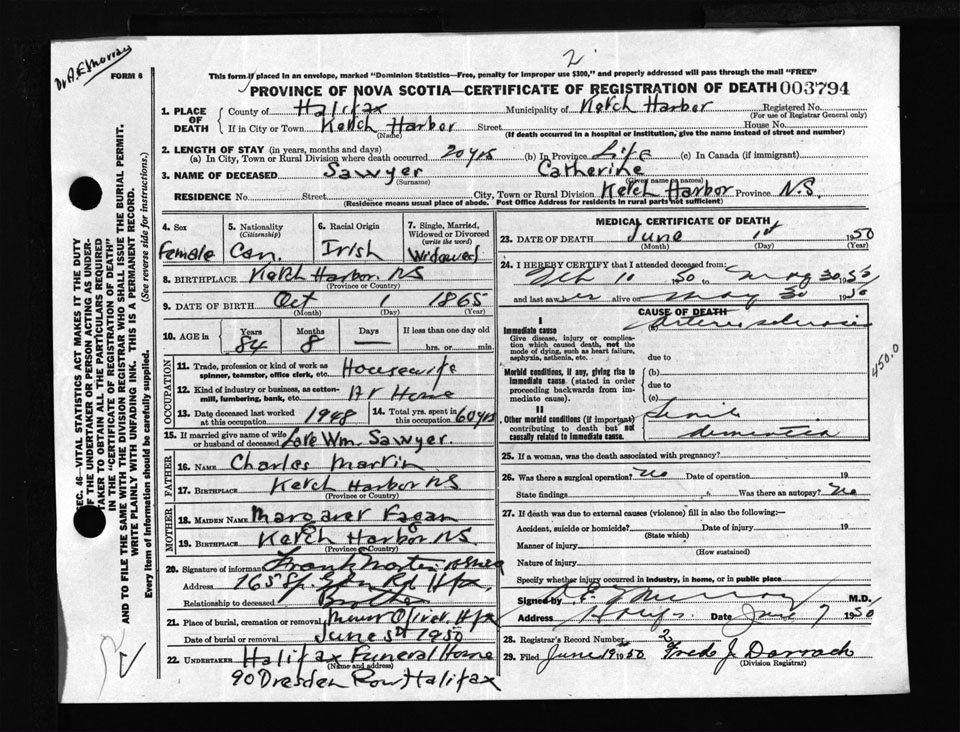 2
Dr A. E. Murray
FORM 6
This form if placed in an envelope, marked "Dominion Statistics—Free, penalty for improper use $300," and properly addressed will pass through the mail "FREE"
PROVINCE OF NOVA SCOTIA—CERTIFICATE OF REGISTRATION OF DEATH 003794
1. PLACE OF DEATH County of Halifax Municipality of Ketch Harbor Registered No.
(For use of Registrar General only)
If in City or Town Ketch Harbor Street House No.
(Name) (If death occurred in a hospital or institution, give the name instead of street and number)
2. LENGTH OF STAY (in years, months and days)
(a) In City, Town or Rural Division where death occurred 20 yrs (b) In Province Life (c) In Canada (if immigrant)
3. NAME OF DECEASED Sawyer Catherine
(Surname) (Given name or names)
RESIDENCE No. Street City, Town or Rural Division Ketch Harbor Province N.S.
(Residence means usual place of abode. Post Office Address for residents in rural parts not sufficient)
4. Sex 5. Nationality (Citizenship) 6. Racial Origin 7. Single, Married, Widowed or Divorced (write the word)
Female Can. Irish Widowed
8. BIRTHPLACE Ketch Harbor. NS
(Province or Country)
9. DATE OF BIRTH Oct 1 1865
(Month) (Day) (Year)
10. AGE in Years Months Days If less than one day old
84 8 — hrs. or min.
OCCUPATION
11. Trade, profession or kind of work as spinner, teamster, office clerk, etc. Housewife
12. Kind of industry or business, as cotton-mill, lumbering, bank, etc. At Home
13. Date deceased last worked at this occupation 1948 14. Total yrs. spent in this occupation 60 yrs
15. If married give name of wife or husband of deceased Late Wm. Sawyer.
FATHER
16. NAME Charles Martin
17. BIRTHPLACE Ketch Harbor NS
(Province or Country)
MOTHER
18. MAIDEN NAME Margaret Fagan
19. BIRTHPLACE Ketch Harbor NS.
(Province or Country)
20. Signature of informant Frank Martin
Address 165 Rd Hfx
Relationship to deceased Brother
21. Place of burial, cremation or removal Mount Olivet Hfx
Date of burial or removal June 5th 1950
22. UNDERTAKER Halifax Funeral Home
(Name and address)
90 Dresden Row Halifax
MEDICAL CERTIFICATE OF DEATH
23. DATE OF DEATH June 1st 1950
(Month) (Day) (Year)
24. I HEREBY CERTIFY that I attended deceased from:
Feb 10 1950 to May 30 1950
and last saw her alive on May 30 1950
CAUSE OF DEATH
I
Immediate cause (a) Arterio sclerosis
Give disease, injury or complication which caused death, not the mode of dying, such as heart failure, asphyxia, asthenia, etc. due to
Morbid conditions, if any, giving rise to immediate cause (stated in order proceeding backwards from immediate cause). (b)
due to
(c)
II
Other morbid conditions (if important) contributing to death but not causally related to immediate cause. Senile dementia
450.0
25. If a woman, was the death associated with pregnancy?
26. Was there a surgical operation? No Date of operation 19
State findings Was there an autopsy? No
27. If death was due to external causes (violence) fill in also the following:—
Accident, suicide or homicide? Date of injury 19
(State which)
Manner of injury
(How sustained)
Nature of injury
Specify whether injury occurred in industry, in home, or in public place
Signed by A E Murray M.D.
Address Halifax Date June 7 1950
28. Registrar's Record Number
29. Filed June 19 1950 Fred J. Darrach
(Division Registrar)
SEC. 46—VITAL STATISTICS ACT MAKES IT THE DUTY
OF THE UNDERTAKER OR PERSON ACTING AS UNDER-
TAKER TO OBTAIN ALL THE PARTICULARS REQUIRED
IN THE "CERTIFICATE OF REGISTRATION OF DEATH"
AND TO FILE THE SAME WITH THE DIVISION REGISTRAR WHO SHALL ISSUE THE BURIAL PERMIT.
WRITE PLAINLY WITH UNFADING INK. THIS IS A PERMANENT RECORD.
Every item of information should be carefully supplied. (See reverse side for instructions.)